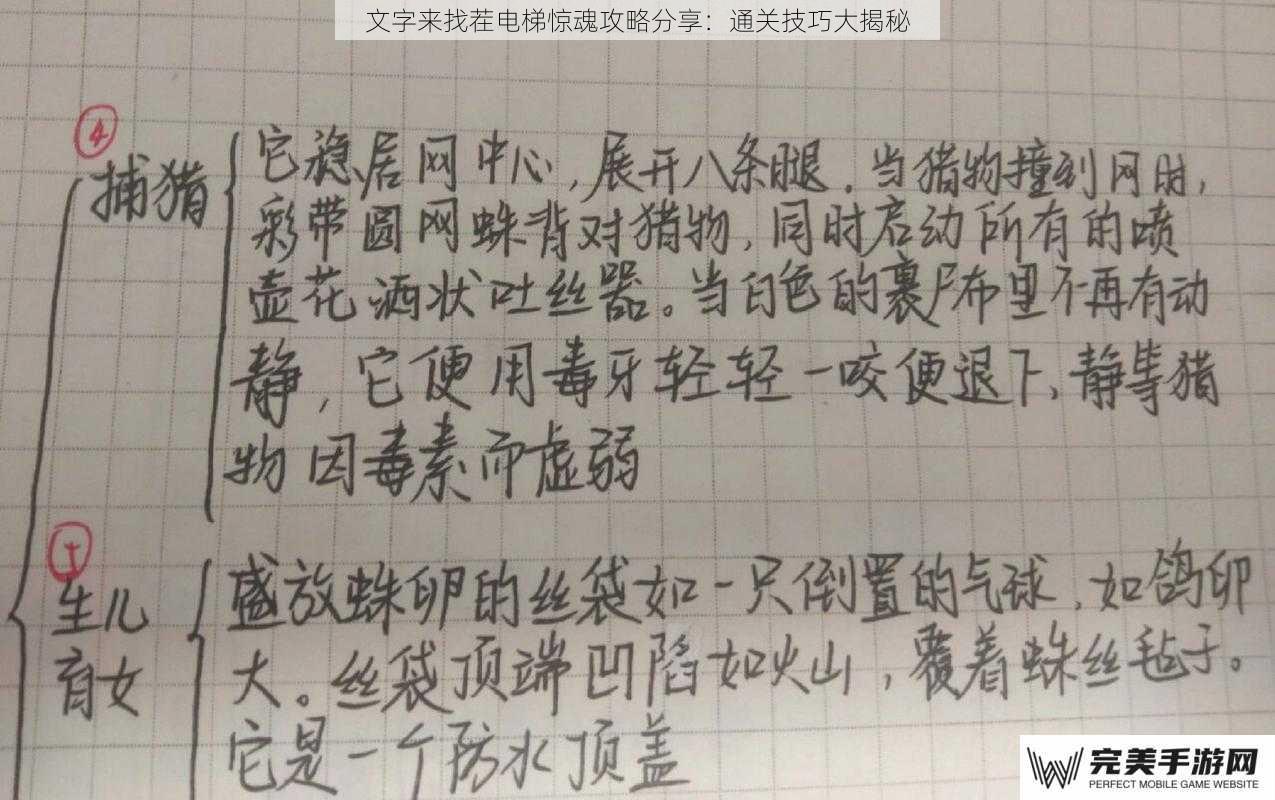 文字来找茬电梯惊魂攻略分享：通关技巧大揭秘
④
捕猎
它稳居网中心,展开八条腿.当猎物撞到网时,
彩带圆网蛛背对猎物,同时启动所有的喷
壶花洒状吐丝器。当白色的裹尸布里不再有动
静,它便用毒牙轻轻一咬便退下、静等猎
物因毒素而虚弱
①
生儿
育女
盛放蛛卵的丝袋如一只倒置的气球、如鸽卵
大。丝袋顶端凹陷如火山,覆着蛛丝毡子。
它是一个防水顶盖
完美手游网
PERFECT MOBILE GAME WEBSITE